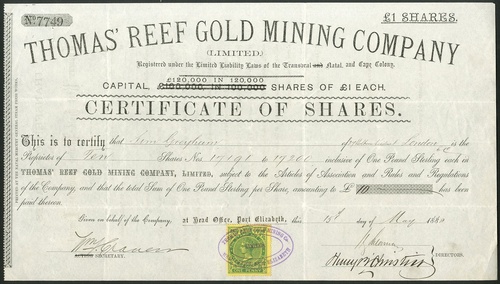 No. 7749
£1 SHARES.
THOMAS' REEF GOLD MINING COMPANY
(LIMITED)
Registered under the Limited Liability Laws of the Transvaal and Natal, and Cape Colony.
£120,000 IN 120,000
CAPITAL, £100,000 IN 100,000 SHARES OF £1 EACH.
CERTIFICATE OF SHARES.
This is to certify that of London is the
Proprietor of Ten Shares Nos. 17191 to 17200 inclusive of One Pound Sterling each in
THOMAS' REEF GOLD MINING COMPANY, LIMITED, subject to the Articles of Association and Rules and Regulations
of the Company, and that the total Sum of One Pound Sterling per Share, amounting to £ 10 has been
paid thereon.
Given on behalf of the Company, at Head Office, Port Elizabeth, this day of May 188
SECRETARY.
DIRECTORS.
ONE PENNY